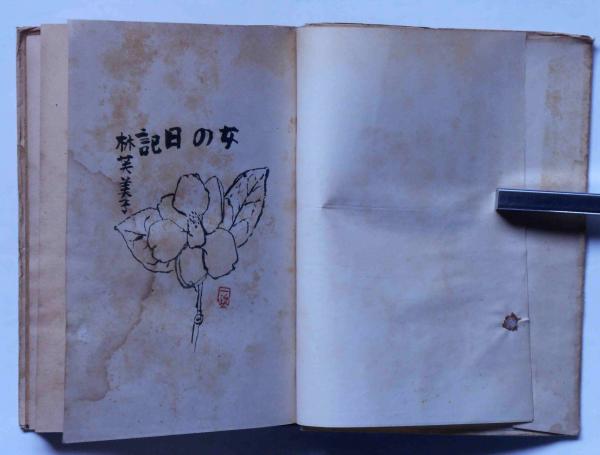 女の日記
林芙美子